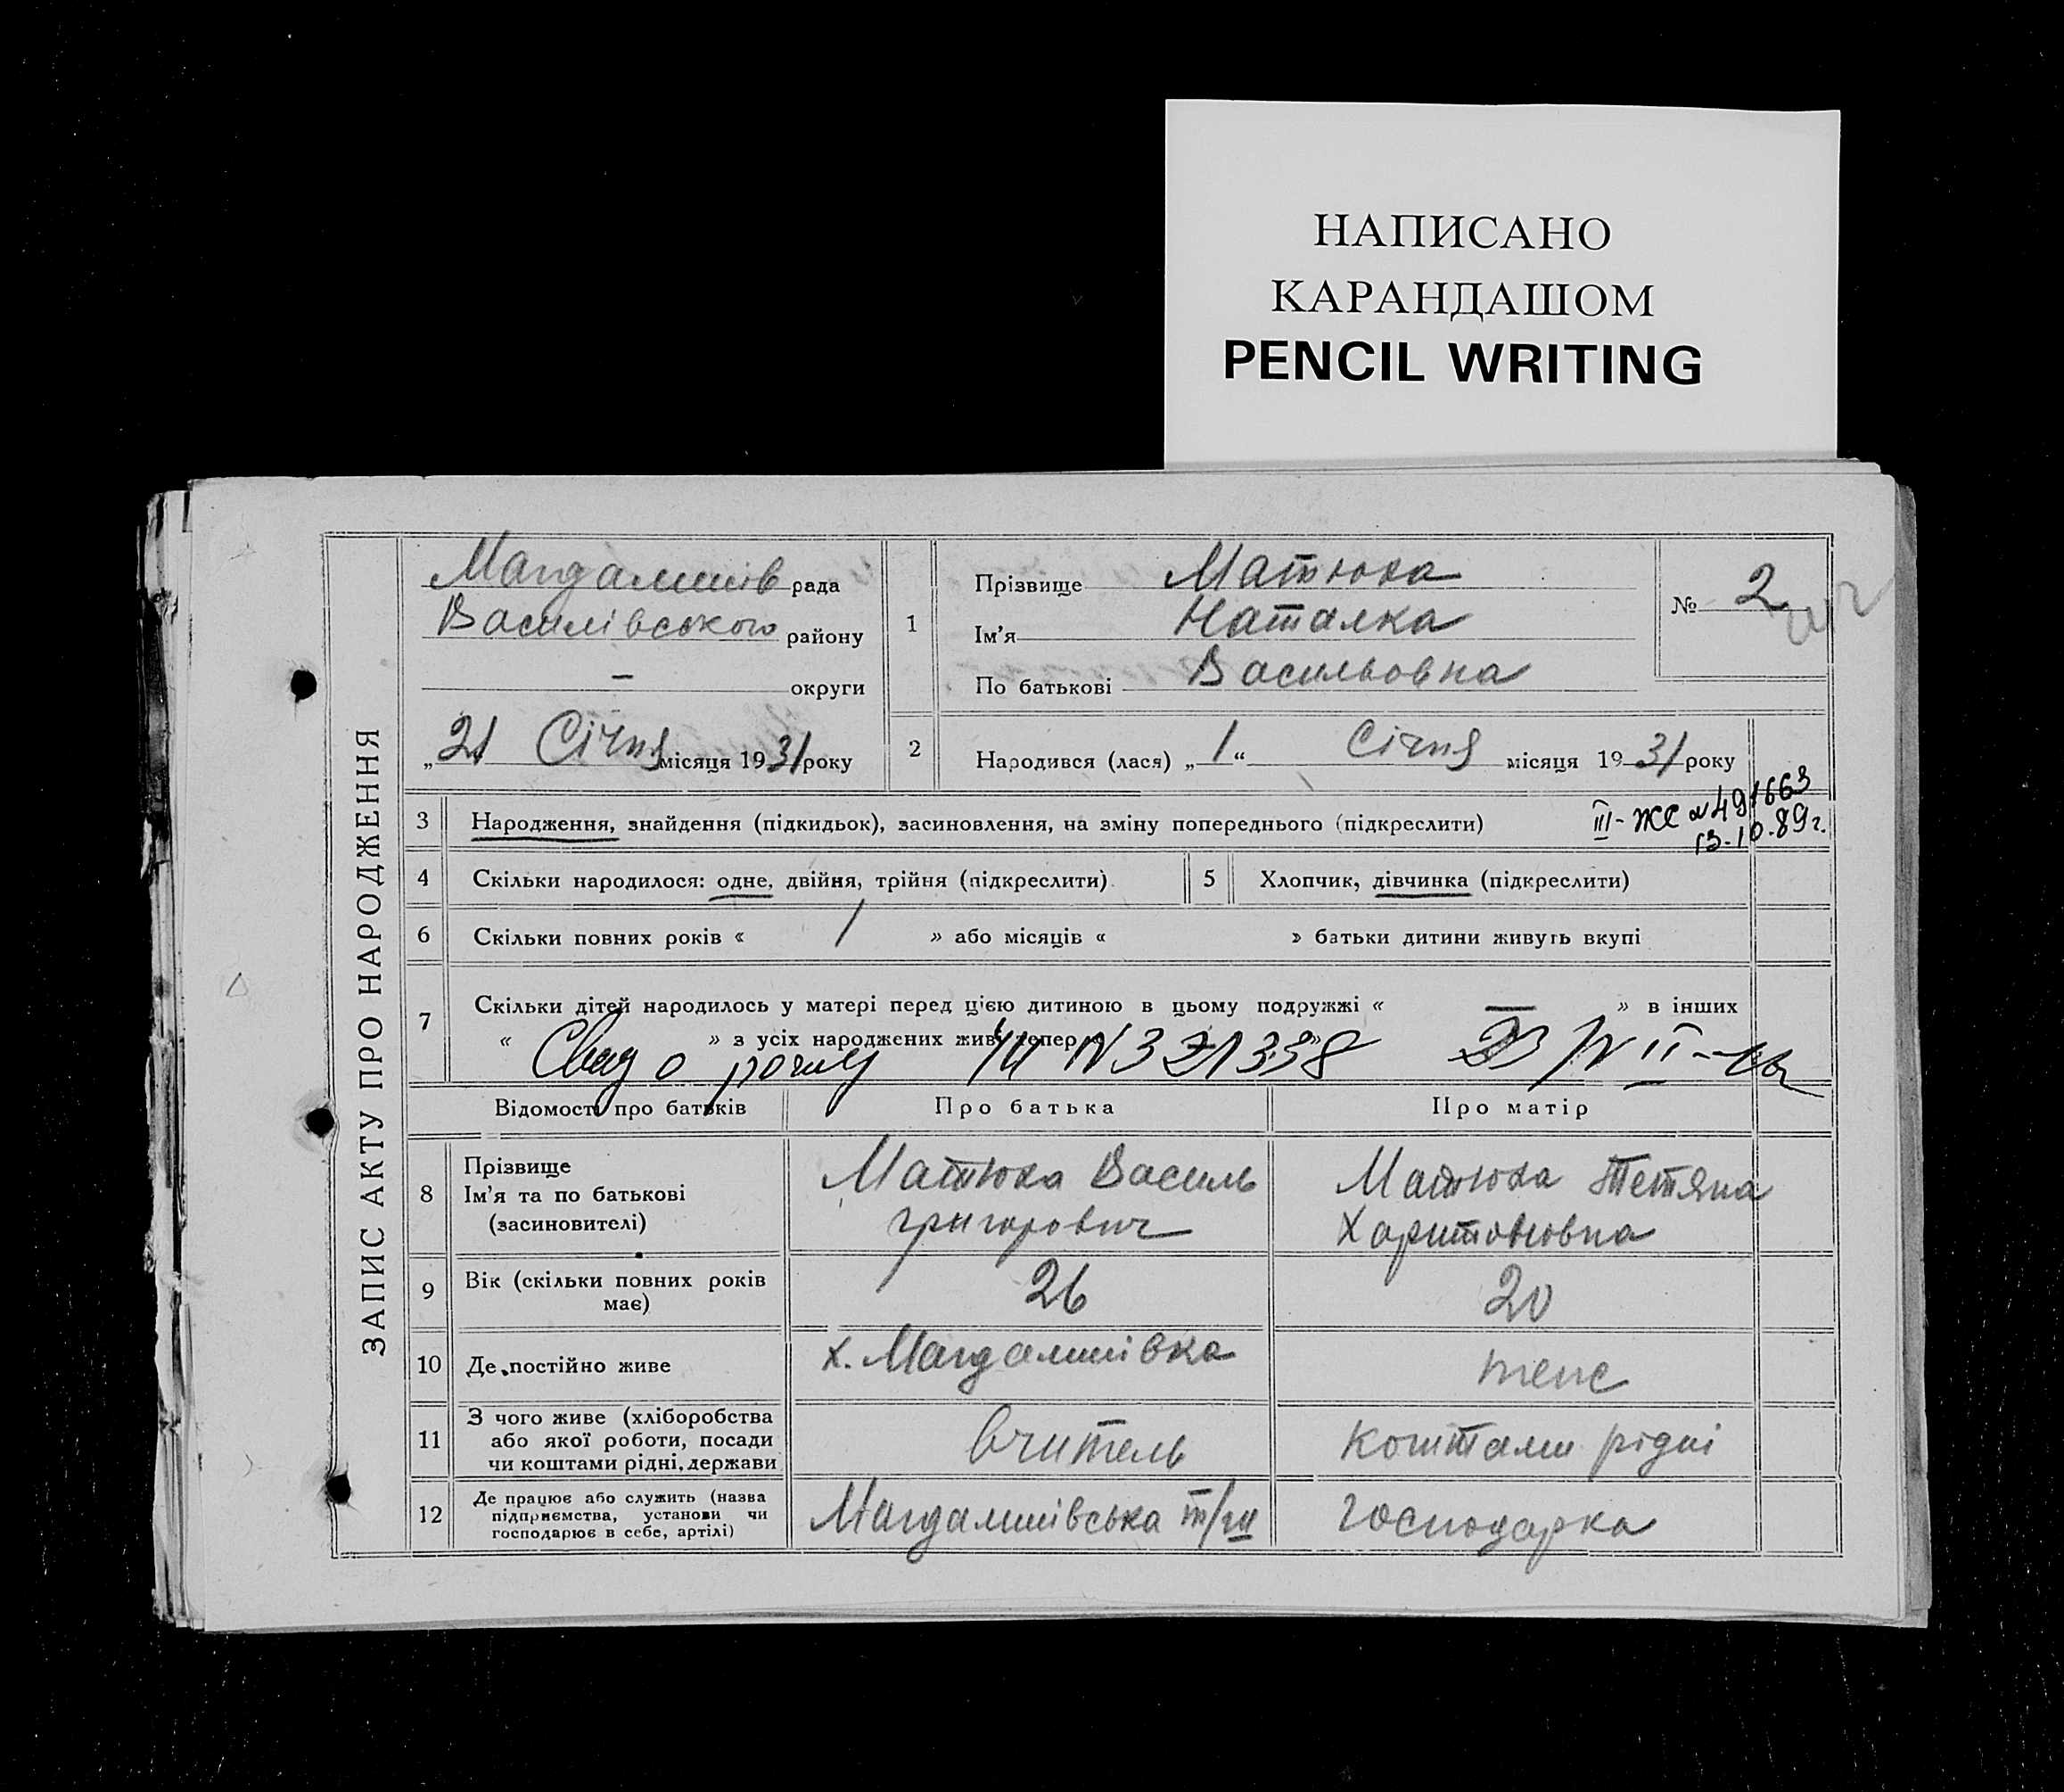 НАПИСАНО
КАРАНДАШОМ
PENCIL WRITING
ЗАПИС АКТУ ПРО НАРОДЖЕННЯ
Магдалинів рада
Василівського району
— округи
„21 Січня місяця 1931 року
1
Прізвище Матюха
Ім'я Наталка
По батькові Васильовна
№ 2
2 Народився (лася) „1“ Січня місяця 1931 року
3 Народження, знайдення (підкидьок), засиновлення, на зміну попереднього (підкреслити)
III-ЖС № 491663
13.10.89г.
4 Скільки народилося: одне, двійня, трійня (підкреслити)
5 Хлопчик, дівчинка (підкреслити)
6 Скільки повних років « 1 » або місяців « » батьки дитини живуть вкупі
7 Скільки дітей народилось у матері перед цією дитиною в цьому подружжі « — » в інших
« » з усіх народжених живі тепер
Відомості про батьків Про батька Про матір
8 Прізвище
Ім'я та по батькові
(засиновителі)
Матюха Василь
григорович
Матюха Тетяна
Харитоновна
9 Вік (скільки повних років
має)
26
20
10 Де постійно живе
х. Магдалинівка
теж
11 З чого живе (хліборобства
або якої роботи, посади
чи коштами рідні, держави
вчитель
коштами рідні
12 Де працює або служить (назва
підприємства, установи чи
господарює в себе, артілі)
Магдалинівська
господарка